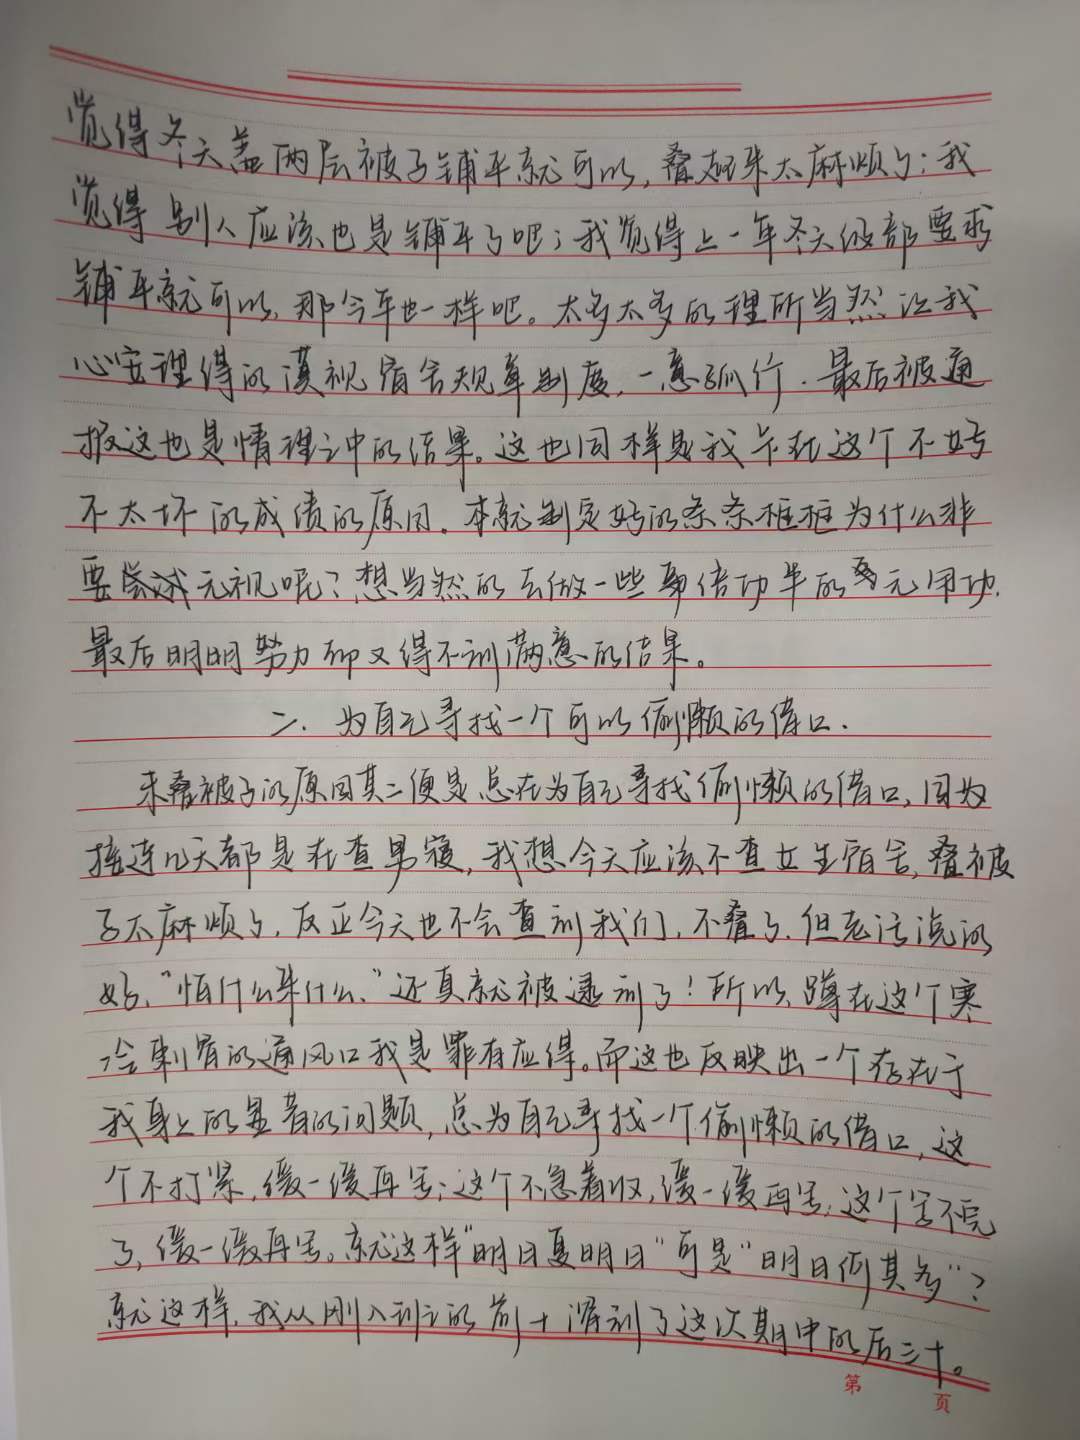 觉得冬天盖两层被子铺平就可以，叠起来太麻烦了；我
觉得别人应该也是铺平了吧；我觉得上一年冬天级部要求
铺平就可以，那今年也一样吧。太多太多的理所当然让我
心安理得的漠视宿舍规章制度，一意孤行．最后被通
报这也是情理之中的结果。这也同样是我卡在这个不好
不太坏的成绩的原因．本就制定好的条条框框为什么非
要尝试无视呢？想当然的去做一些事倍功半的无用功．
最后明明努力却又得不到满意的结果。
二．为自己寻找一个可以偷懒的借口．
未叠被子的原因其二便是总在为自己寻找偷懒的借口，因为
接连几天都是在查男寝，我想今天应该不查女生宿舍，叠被
子太麻烦了，反正今天也不会查到我们，不叠了．但老话说的
好，“怕什么来什么、”还真就被逮到了！所以，蹲在这个寒
冷刺骨的通风口我是罪有应得。而这也反映出一个存在于
我身上的显著的问题，总为自己寻找一个偷懒的借口，这
个不打紧，缓一缓再写；这个不急着收，缓一缓再写；这个写不完
了，缓一缓再写。就这样“明日复明日“可是“明日何其多”？
就这样，我从刚入到之的前十滑到了这次期中的后三十。
第 页